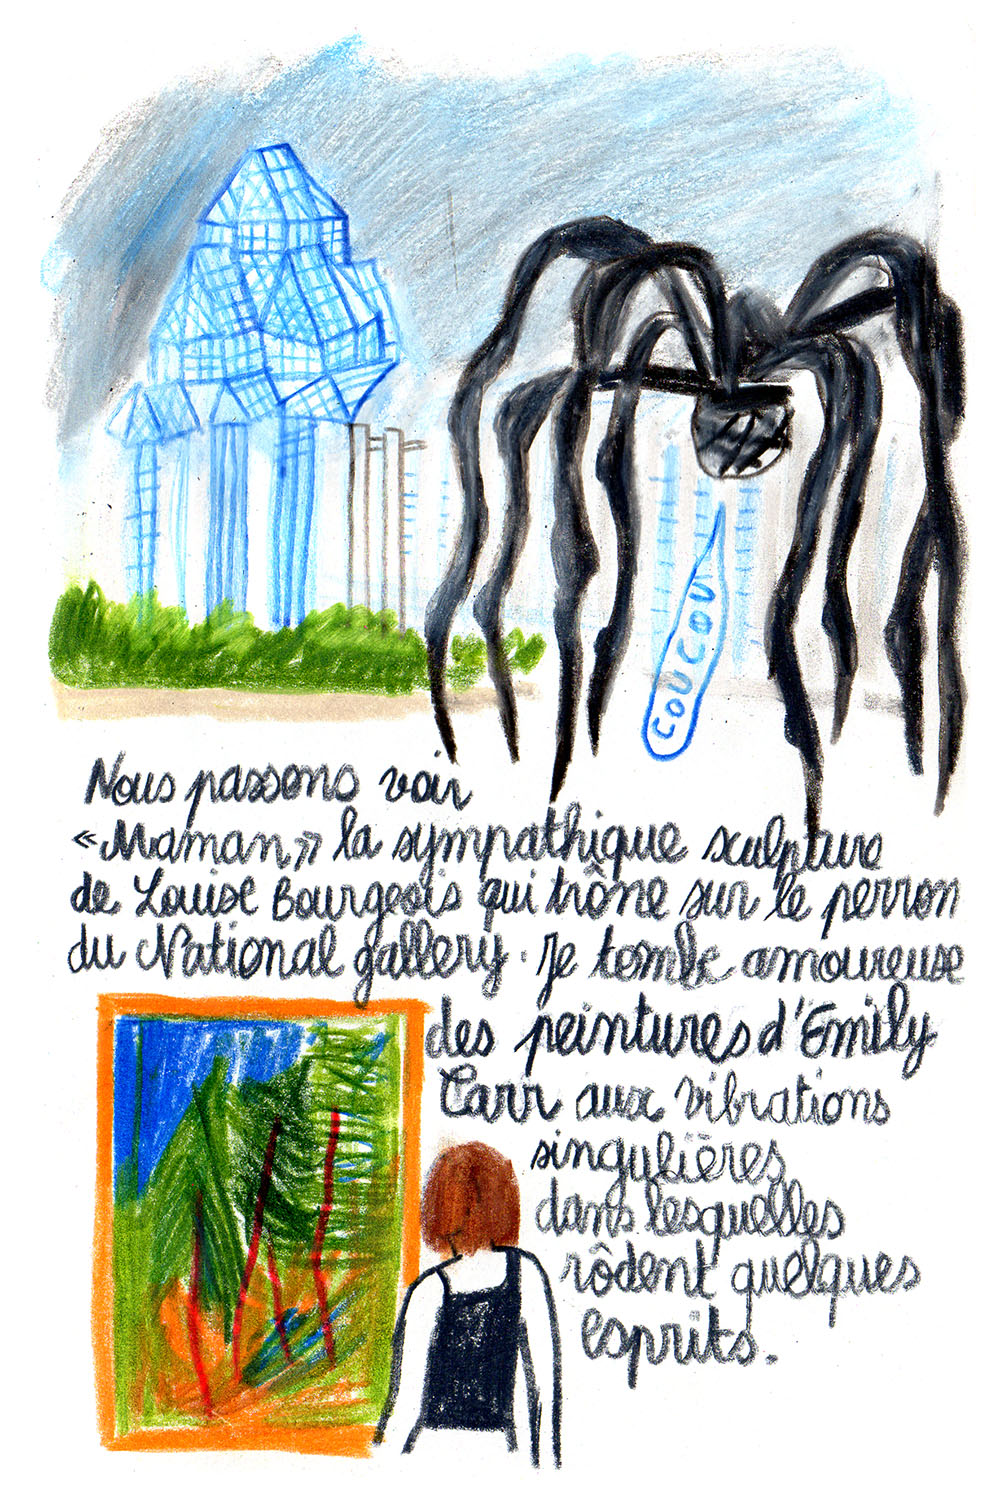 COUCOU
Nous passons voir
«Maman» la sympathique sculpture
de Louise Bourgeois qui trône sur le perron
du National gallery. Je tombe amoureuse
des peintures d'Emily
Carr aux vibrations
singulières
dans lesquelles
rôdent quelques
esprits.